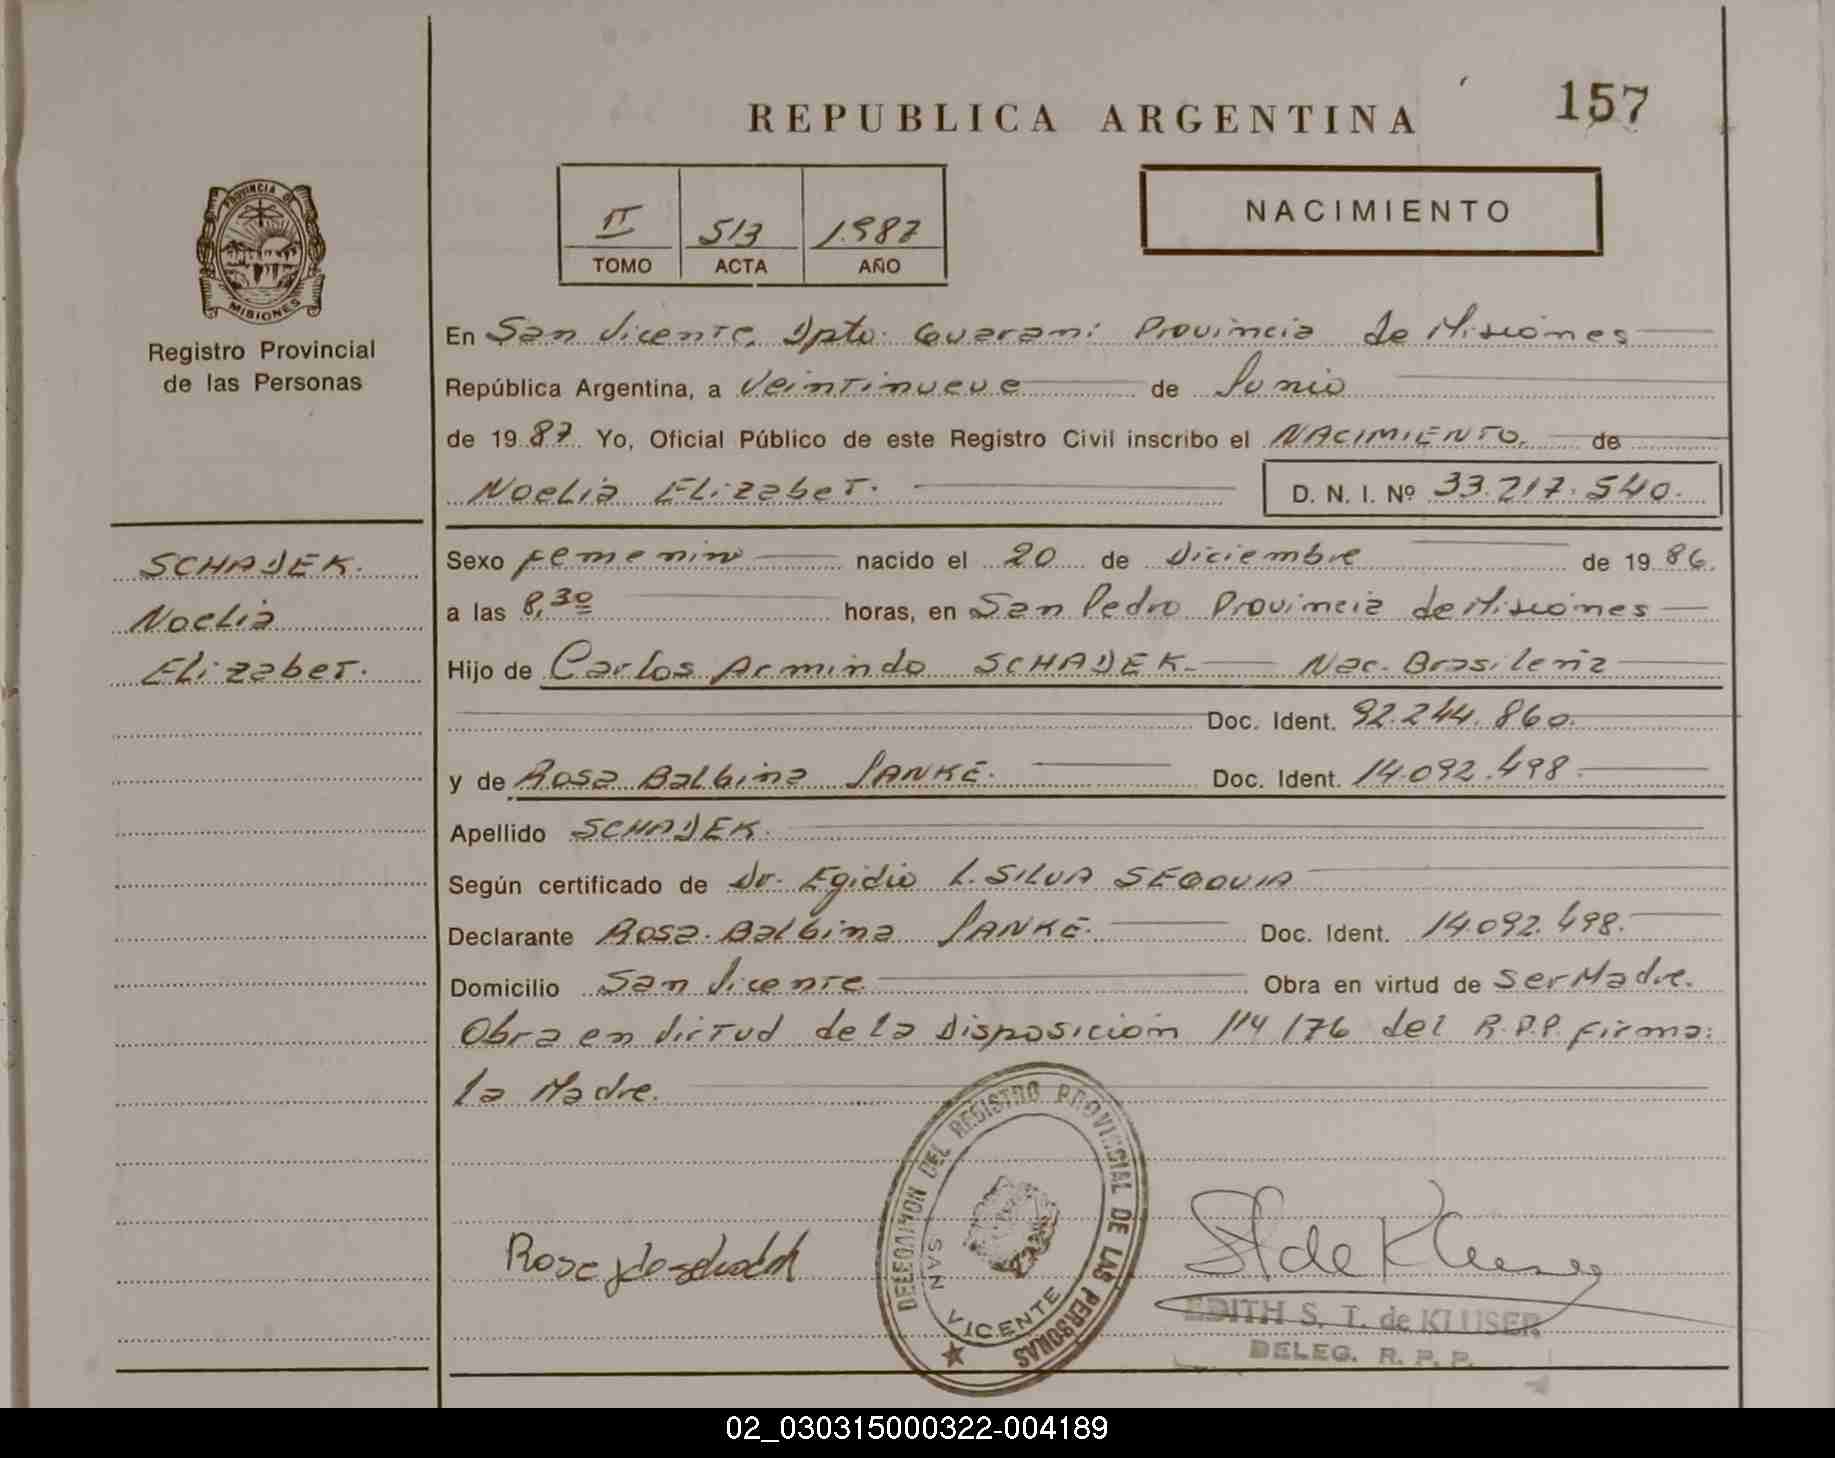 REPUBLICA ARGENTINA
157
PROVINCIA DE
MISIONES
Registro Provincial
de las Personas
II 513 1.987
TOMO ACTA AÑO
NACIMIENTO
En San Vicente, Dpto. Guarani Provincia de Misiones
República Argentina, a Veintinueve de Junio
de 1987 Yo, Oficial Público de este Registro Civil inscribo el NACIMIENTO. de
Noelia Elizabet.
D. N. I. Nº 33.217.540.
SCHADEK.
Noelia
Elizabet.
Sexo femenino nacido el 20 de Diciembre de 1986.
a las 8,30 horas, en San Pedro Provincia de Misiones
Hijo de Carlos Armindo SCHADEK. Nac. Brasileña
Doc. Ident. 92.244.860.
y de Rosa Balbina JANKE. Doc. Ident. 14.092.498
Apellido SCHADEK.
Según certificado de Dr. Egidio L. SILVA SEQOVIA
Declarante Rosa Balbina JANKE. Doc. Ident. 14.092.498.
Domicilio San Vicente Obra en virtud de Ser Madre.
Obra en Virtud de la Disposición 114/76 del R.P.P. firma:
la Madre.
DELEGACION DEL REGISTRO PROVINCIAL DE LAS PERSONAS
SAN VICENTE
EDITH S. T. de KLUSER
DELEG. R. P. P.
02_030315000322-004189